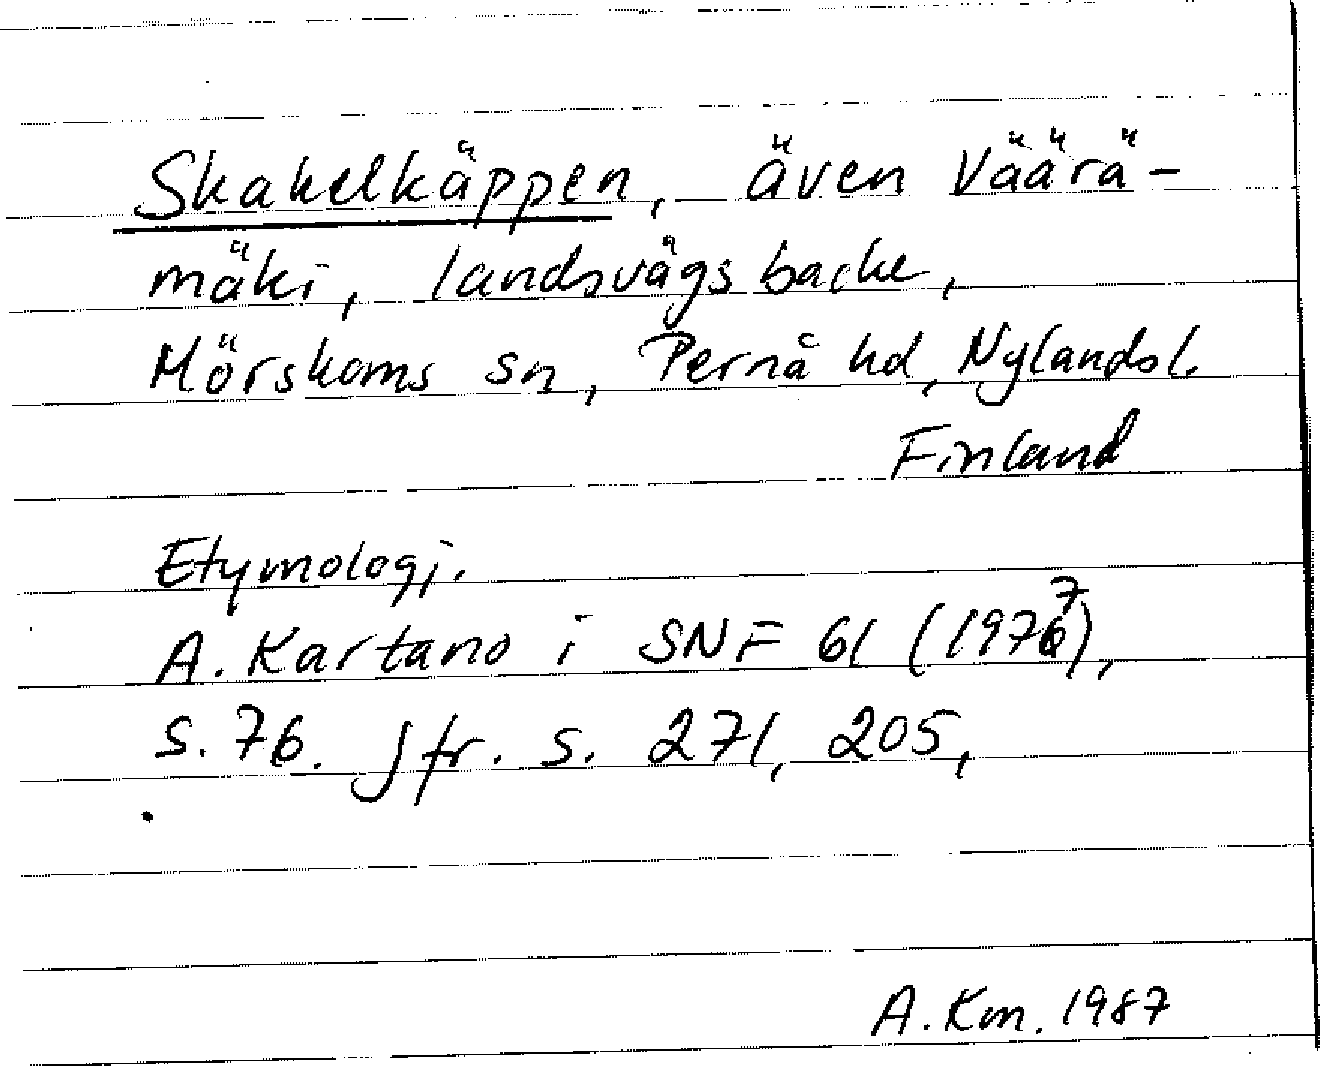 Skakelkäppen, även Väärä-
mäki, landsvägsbacke,
Mörskoms sn, Pernå hd, Nylands l.
Finland
Etymologi.
A. Kartano i SNF 61 (1977),
s. 76. Jfr. s. 271, 205,
A. Km. 1987